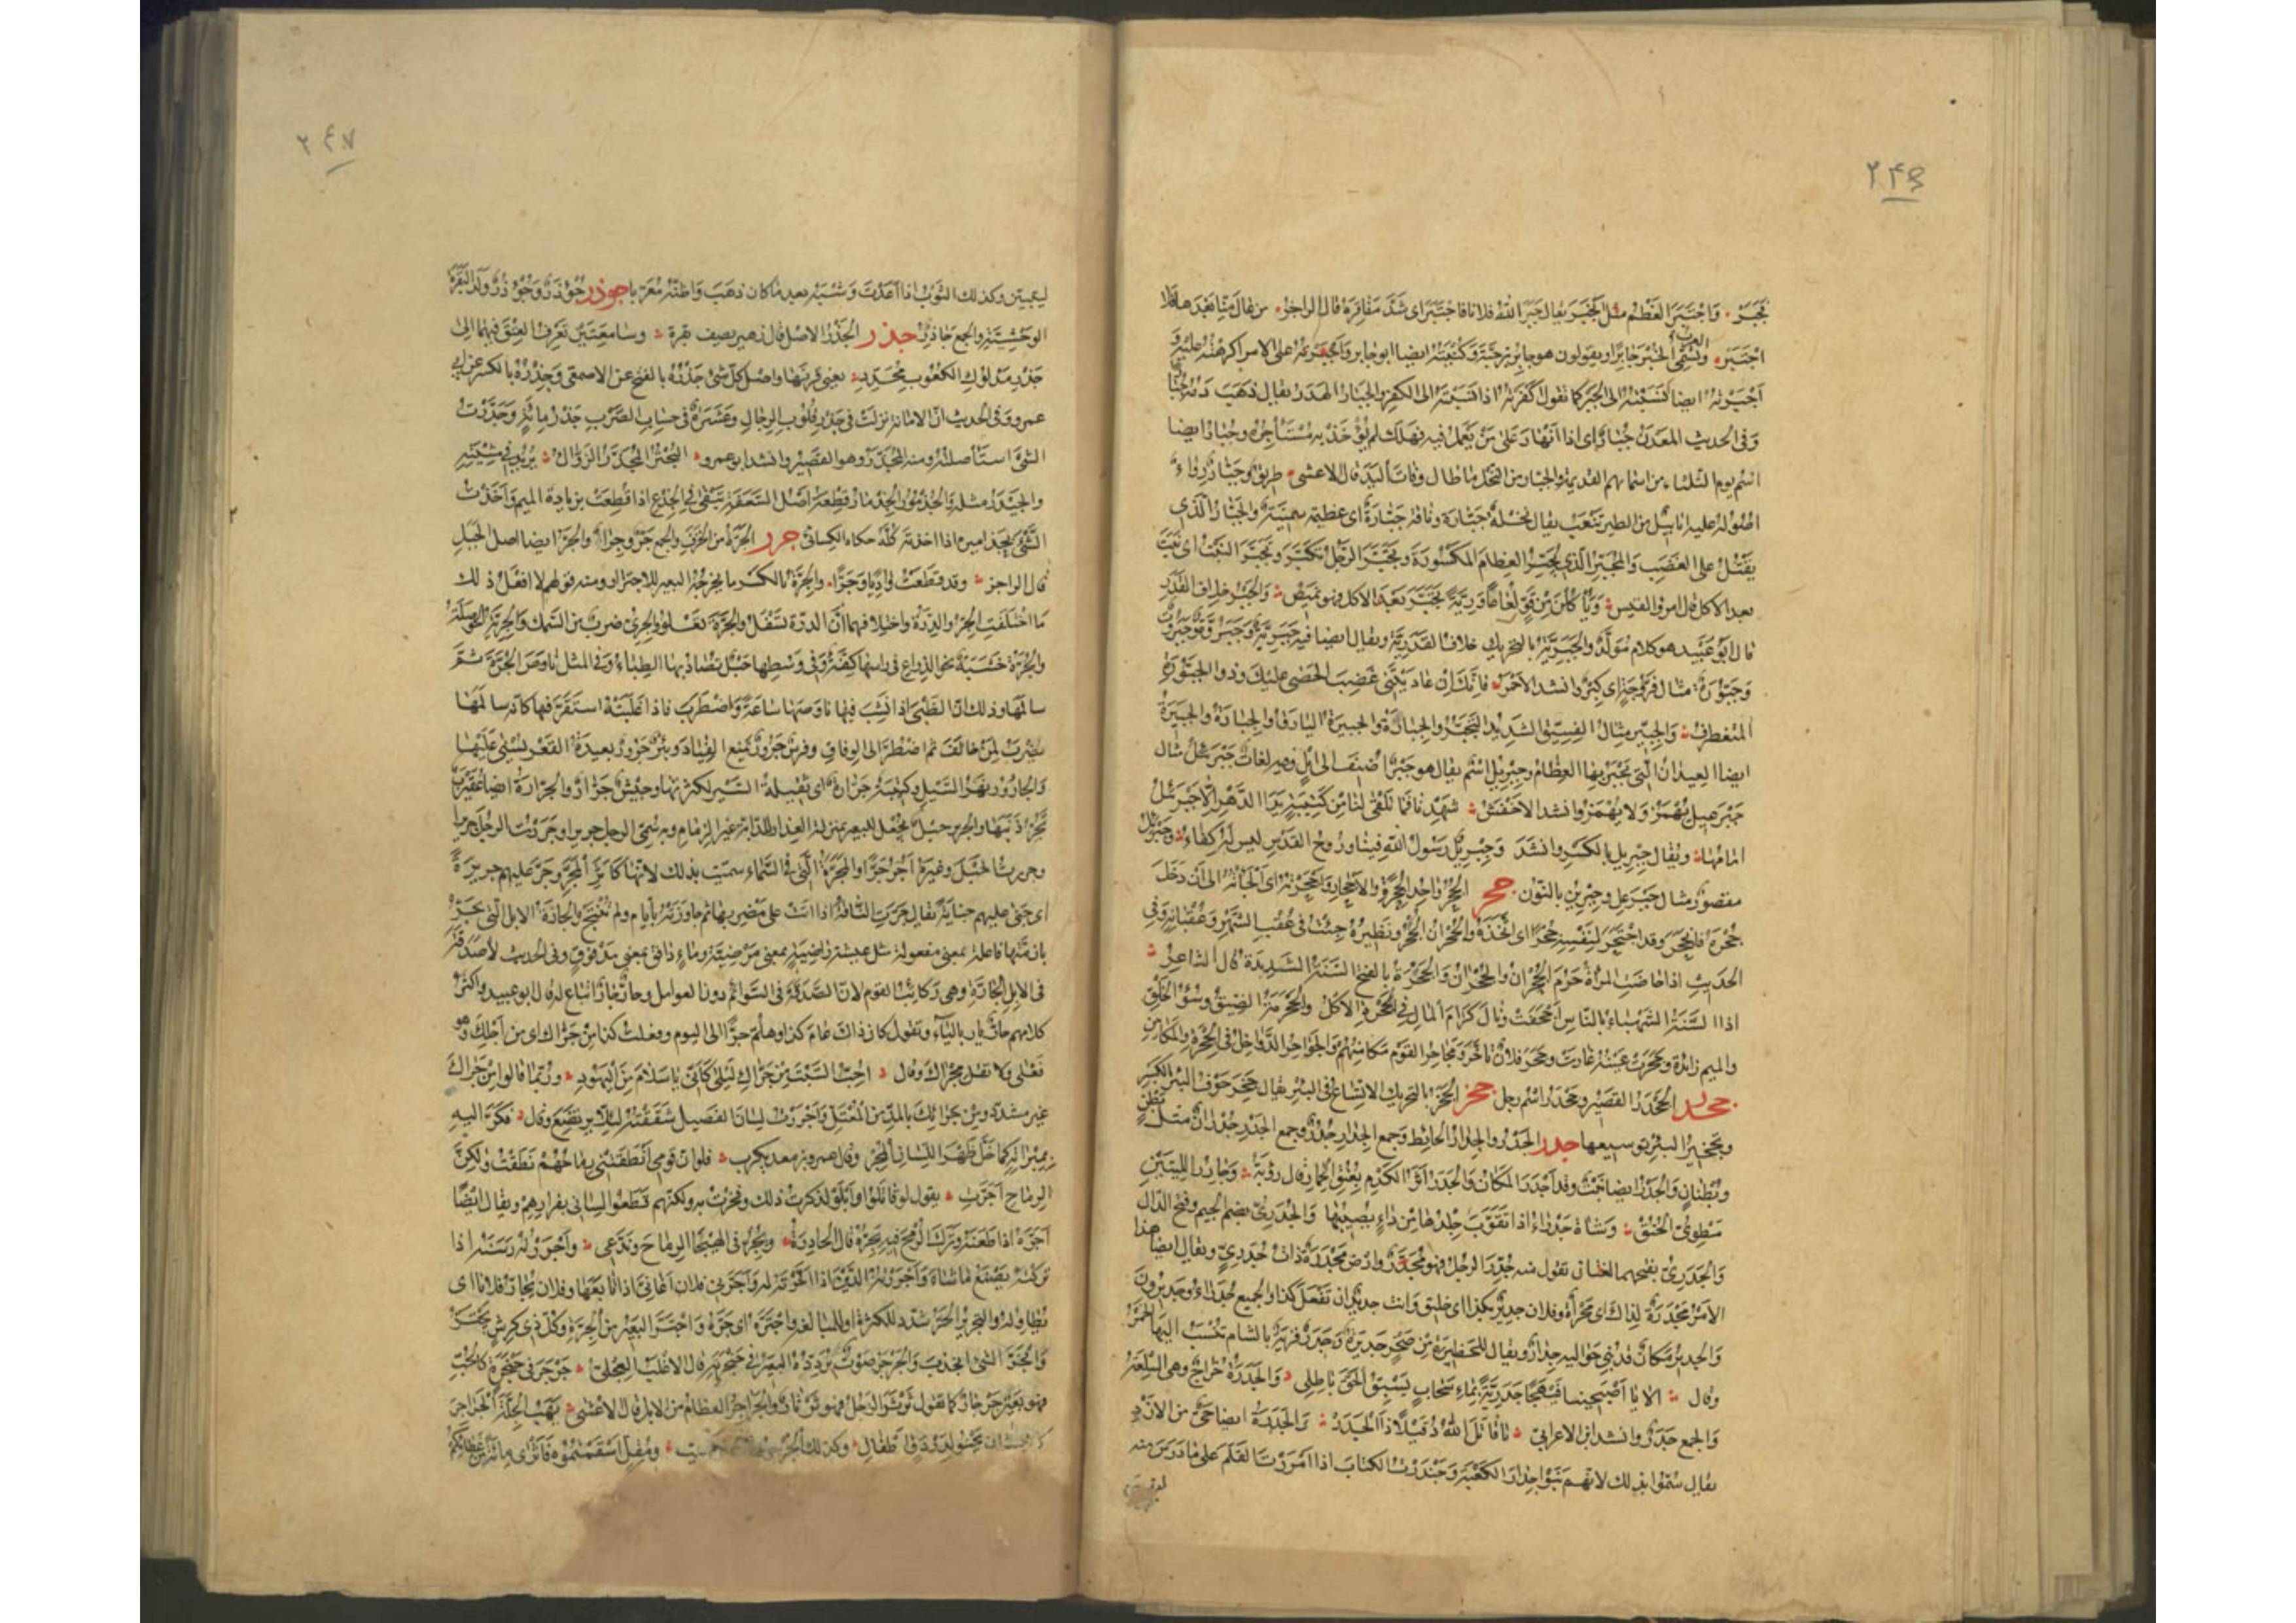 ۲۴۶
فجبر ٠ واجتبر العظم مثل انجبر يقال جبر الله فلانا فاجتبر اى سدّ مفاقره قال الراجز ٠ من عال منا بعدها فلا
اجتبر ٠ والعرب تسمى الخبز جابرا ويقولون هو جابر بن حبّة وكنيته ايضا ابو جابر واجبرته على الامر اكرهته عليه و
اجبرته ايضا نسبته الى الجبر كما تقول اكفرته اذا نسبته الى الكفر والجبار الهدر يقال ذهب دمه جبارا
وفى الحديث المعدن جبار اى اذا انهار على من يعمل فيه فهلك لم يؤخذ به مستأجره وجبار ايضا
اسم يوم الثلثاء من اسمائهم القديمة والجبار من النخل ما طال وفات اليد قال الاعشى ٠ طريق وجبار رواء
اصوله عليه ابابيل من الطير تنعب يقال نخلة جبارة وناقة جبارة اى عظيمة سمينة والجبار الذى
يقتل على الغضب والمجبر الذى يجبر العظام المكسورة وتجبر الرجل تكبر وتجبر النبت اى نبت
بعد الاكل قال امرؤ القيس ٠ ويأكلن من قوّ لعاعا وربّة تجبر بعد الاكل فهو نميص ٠ والجبر خلاف القدر
قال ابو عبيد هو كلام مولّد والجبرية بالتحريك خلاف القدرية ويقال ايضا فيه جبرية وجبروة وجبروت
وجبّورة مثال فرّوجة اى كبر وانشد الاحمر ٠ فانك ان عاديتنى غضب الحصى عليك وذو الجبّورة
المتغطرف ٠ والجبير مثال الفسيق الشديد التجبر والجبارة والجبيرة اليارق والجبارة والجبيرة
ايضا العيدان التى تجبر بها العظام وجبريل اسم يقال هو جبر اضيف الى ايل وفيه لغات جبرئيل مثال
جبرعيل يهمز ولا يهمز وانشد الاخفش ٠ شهدنا فما تلقى لنا من كتيبة يد الدهر الا جبرئيل
امامها ٠ ويقال جبريل بالكسر وانشد وجبريل رسول الله فينا وروح القدس ليس له كفاء ٠ وجبرئل
مقصور مثال جبرعل وجبرين بالنون ٠ جحر الجحر واحد الجحرة والاجحار واجحرته اى الجأته الى ان دخل
جحره فانجحر وقد اجتحر لنفسه جحرا اى اتخذه والجحران الجحر ونظيره جئت فى عقب الشهر وعقبانه وفى
الحديث اذا حاضت المرأة حرم الجحران والجحران والجحرة بالفتح السنة الشديدة قال الشاعر ٠
اذا السنة الشهباء بالناس اجحفت ونال كرام المال فى الجحرة الاكل والجحرمة الضيق وسوء الخلق
والميم زائدة وجحرت عينه غارت وجحر فلان تأخر ومجاحر القوم مكامنهم والجواحر الدواخل فى الجحرة والمكامن
جحدر الجحدر القصير وجحدر اسم رجل جخر الجخر بالتحريك الاتساع فى البئر يقال جخر جوف البئر بالكسر
وتجخير البئر توسيعها جدر الجدر والجدار الحائط وجمع الجدار جدر وجمع الجدر جدران مثل بطن
وبطنان والجدر ايضا نبت وقد اجدر المكان والجدر اثر الكدم بعنق الحمار قال رؤبة ٠ وجادر الليتين
مطوى الحنق ٠ وشاة جدراء اذا تقوب جلدها من داء يصيبها والجدرى بضم الجيم وفتح الدال
والجدرى بفتحهما لغتان تقول منه جدر الرجل فهو مجدر وارض مجدرة ذات جدرى ويقال ايضا هذا
الامر مجدرة لذاك اى محراة وفلان جدير بكذا اى خليق وانت جدير ان تفعل كذا والجميع جدراء وجديرون
والجدير مكان قد بنى حواليه جدار ويقال للحظيرة من صخر جديرة وجدر قرية بالشام تنسب اليها الخمر
وقال ٠ الا يا اصبحينا فيهجا جدرية بماء سحاب يسبق الحق باطلى ٠ والجدرة خراج وهى السلعة
والجمع جدر وانشد ابن الاعرابى ٠ يا قاتل الله ذقيلا ذا الجدر ٠ والجدرة ايضا حى من الازد
يقال سموا بذلك لانهم بنوا جدار الكعبة وجندرت الكتاب اذا امررت القلم على ما درس منه
۲٤٧
ليتبين وكذلك الثوب اذا اعدت وشيه بعد ما كان ذهب واظنه معربا جوذر جؤذر وجؤذر ولد البقرة
الوحشية والجمع جآذر جذر الجذر الاصل قال زهير يصف بقرة ٠ وسامعتين تعرف العتق فيهما الى
جذر مدلوك الكعوب محدد ٠ يعنى قرنها واصل كل شئ جذره بالفتح عن الاصمعى وجذره بالكسر عن ابى
عمرو وفى الحديث ان الامانة نزلت فى جذر قلوب الرجال وعشرة فى حساب الضرب جذر مائة وجذرت
الشئ استأصلته ومنه المجذر وهو القصير وانشد ابو عمرو ٠ البحتر المجذر الزوال ٠ يريد فى مشيته
والجيذر مثله والجذمور والجذمار قطعة اصل السعفة تبقى فى الجذع اذا قطعت بزيادة الميم واخذت
الشئ بجذاميره اذا اخذته كله حكاه الكسائى جرر الجرة من الخزف والجمع جر وجرار والجر ايضا اصل الجبل
قال الراجز ٠ وقد قطعت واديا وجرا ٠ والجرة بالكسر ما يخرجه البعير للاجترار ومنه قولهم لا افعل ذلك
ما اختلفت الجرة والدرة واختلافهما ان الدرة تسفل والجرة تعلو والجرى ضرب من السمك والجرية الحوصلة
والجرة خشبة نحو الذراع فى رأسها كفة وفى وسطها حبل تصاد بها الظباء وفى المثل ناوص الجرة ثم
سالمها وذلك ان الظبى اذا نشب فيها ناوصها ساعة واضطرب فاذا غلبته استقر فيها كانه سالمها
يضرب لمن خالف ثم اضطر الى الوفاق وفرس جرور يمنع القياد وبئر جرور بعيدة القعر يسنى عليها
والجارور نهر السيل وكتيبة جرارة اى ثقيلة السير لكثرتها وجيش جرار والجرارة ايضا عقيرب
تجر ذنبها والجرير حبل يجعل للبعير بمنزلة العذار للدابة غير الزمام وبه سمى الرجل جريرا وجررت الرجل جريرا
وجررت الحبل وغيره اجره جرا والمجرة التى فى السماء سميت بذلك لانها كاثر المجر وجر عليهم جريرة
اى جنى عليهم جناية يقال جرت الناقة اذا اتت على مضربها ثم جاوزته بايام ولم تنتج والجارة الابل التى تجر
بازمتها فاعلة بمعنى مفعولة مثل عيشة راضية بمعنى مرضية وماء دافق بمعنى مدفوق وفى الحديث لا صدقة
فى الابل الجارة وهى ركائب القوم لان الصدقة فى السوائم دون العوامل وحار جار اتباع له قال ابو عبيد واكثر
كلامهم حار يار بالياء وتقول كان ذاك عام كذا وهلم جرا الى اليوم وفعلت كذا من جراك اى من اجلك وهو
فعلى ولا تقل مجراك وقال ٠ احب السبت من جراك ليلى كانى يا سلام من اليهود ٠ وربما قالوا من جراك
غير مشدد ومن جرائك بالمد من المعتل واجررت لسان الفصيل شققته لئلا يرتضع وقال ٠ فكر اليه
بمبراته كما خل ظهر اللسان المجر وقال عمرو بن معديكرب ٠ فلو ان قومى انطقتنى رماحهم نطقت ولكن
الرماح اجرت ٠ يقول لو قاتلوا وابلوا لذكرت ذلك وفخرت به ولكنهم قطعوا لسانى بفرارهم ويقال ايضا
اجره اذا طعنه وترك الرمح فيه يجره قال الحادرة ٠ ونجر فى الهيجا الرماح وندعى ٠ واجررته رسنه اذا
تركته يصنع ما شاء واجررته الدين اذا اخرته له واجرنى فلان اغانى اذا تابعها وفلان يجار فلانا اى
يطاوله والتجرير الجر شدد للكثرة او للمبالغة واجتره اى جره واجتر البعير من الجرة وكل ذى كرش يجتر
وانجر الشئ انجذب والجرجرة صوت يردده البعير فى حنجرته قال الاغلب العجلى ٠ جرجر فى حنجرة كالحب
فهو بعير جرجار كما تقول ثرثر الرجل فهو ثرثار والجراجر العظام من الابل قال الاعشى ٠ يهب الجلة الجراجر
كالبستان تحنو لدردق اطفال ٠ وكذلك الجرجور ٠ ومقل اسقتموه فاثرى مائة من عطائكم